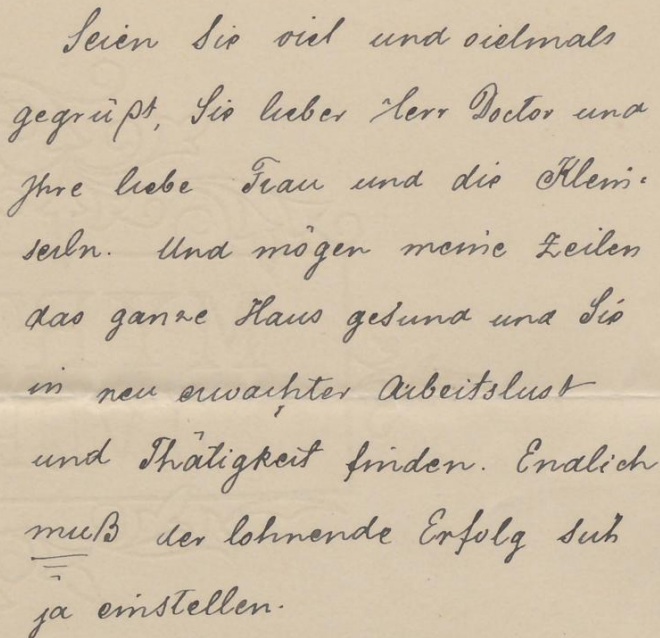 Seien Sie viel und vielmals
gegrüßt, Sie lieber Herr Doctor und
Ihre liebe Frau und die Klein-
serln. Und mögen meine Zeilen
das ganze Haus gesund und Sie
in neu erwachter Arbeitslust
und Thätigkeit finden. Endlich
muß der lohnende Erfolg sich
ja einstellen.